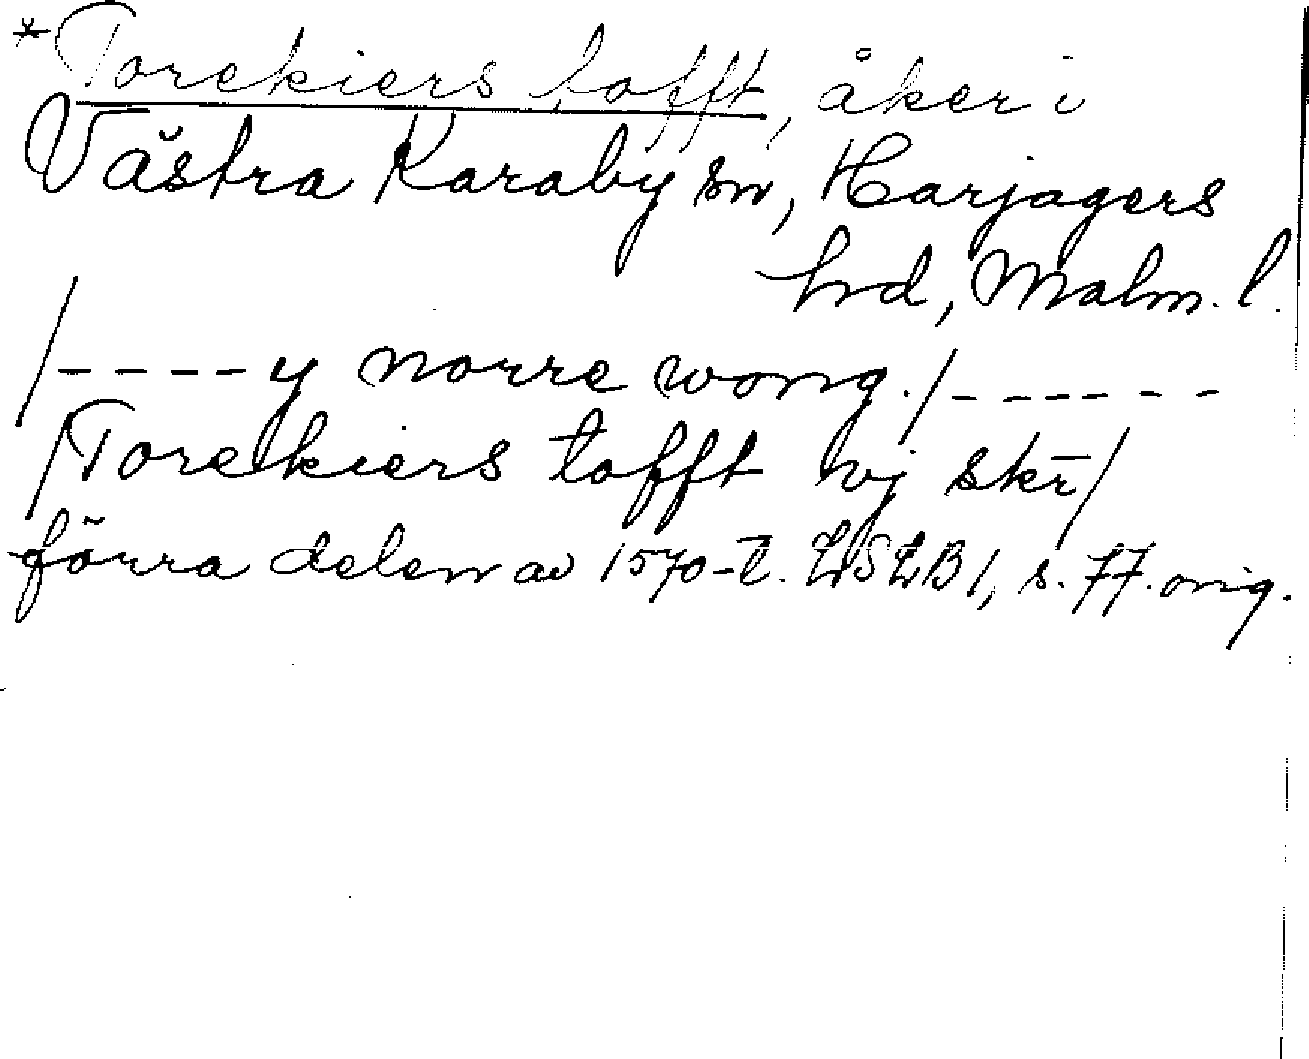 *Torekiers tofft, åker i
Västra Karaby sn, Harjagers
hrd, Malm. l.
/----y norre wong./------
/Torekiers tofft vj skr/
förra delen av 1570-t. LSLB 1, s. 77. orig.